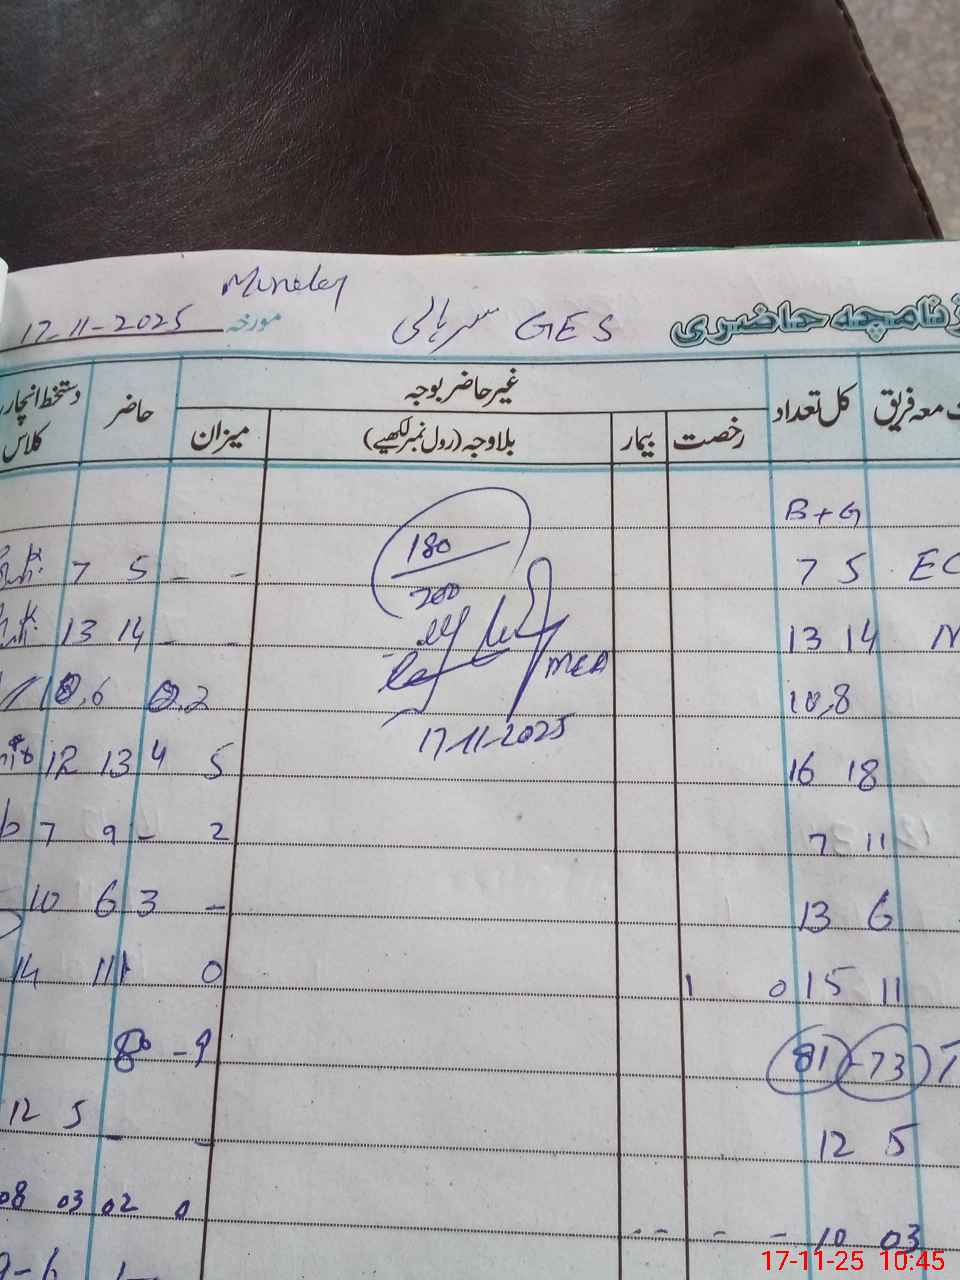 Munday
17-11-2025 مورخہ
سرہالی GES
نامچہ حاضری
معہ فریق
کل تعداد
غیر حاضر بوجہ
حاضر
دستخط انچار
کلاس
رخصت
بیمار
بلاوجہ (رول نمبر لکھیے)
میزان
B+G
180
200
7 5 - - 7 5 EC
13 14 - - 13 14
MEA
10,8
17-11-2025
12 13 4 5 16 18
7 9 - 2 7 11
10 6 3 - 13 6
14 11 1 0 1 0 15 11
8 - 9 81 - 73 T
12 5 - - 12 5
08 03 02 0 - - - - 10 03
9 - 6 1
17-11-25 10:45